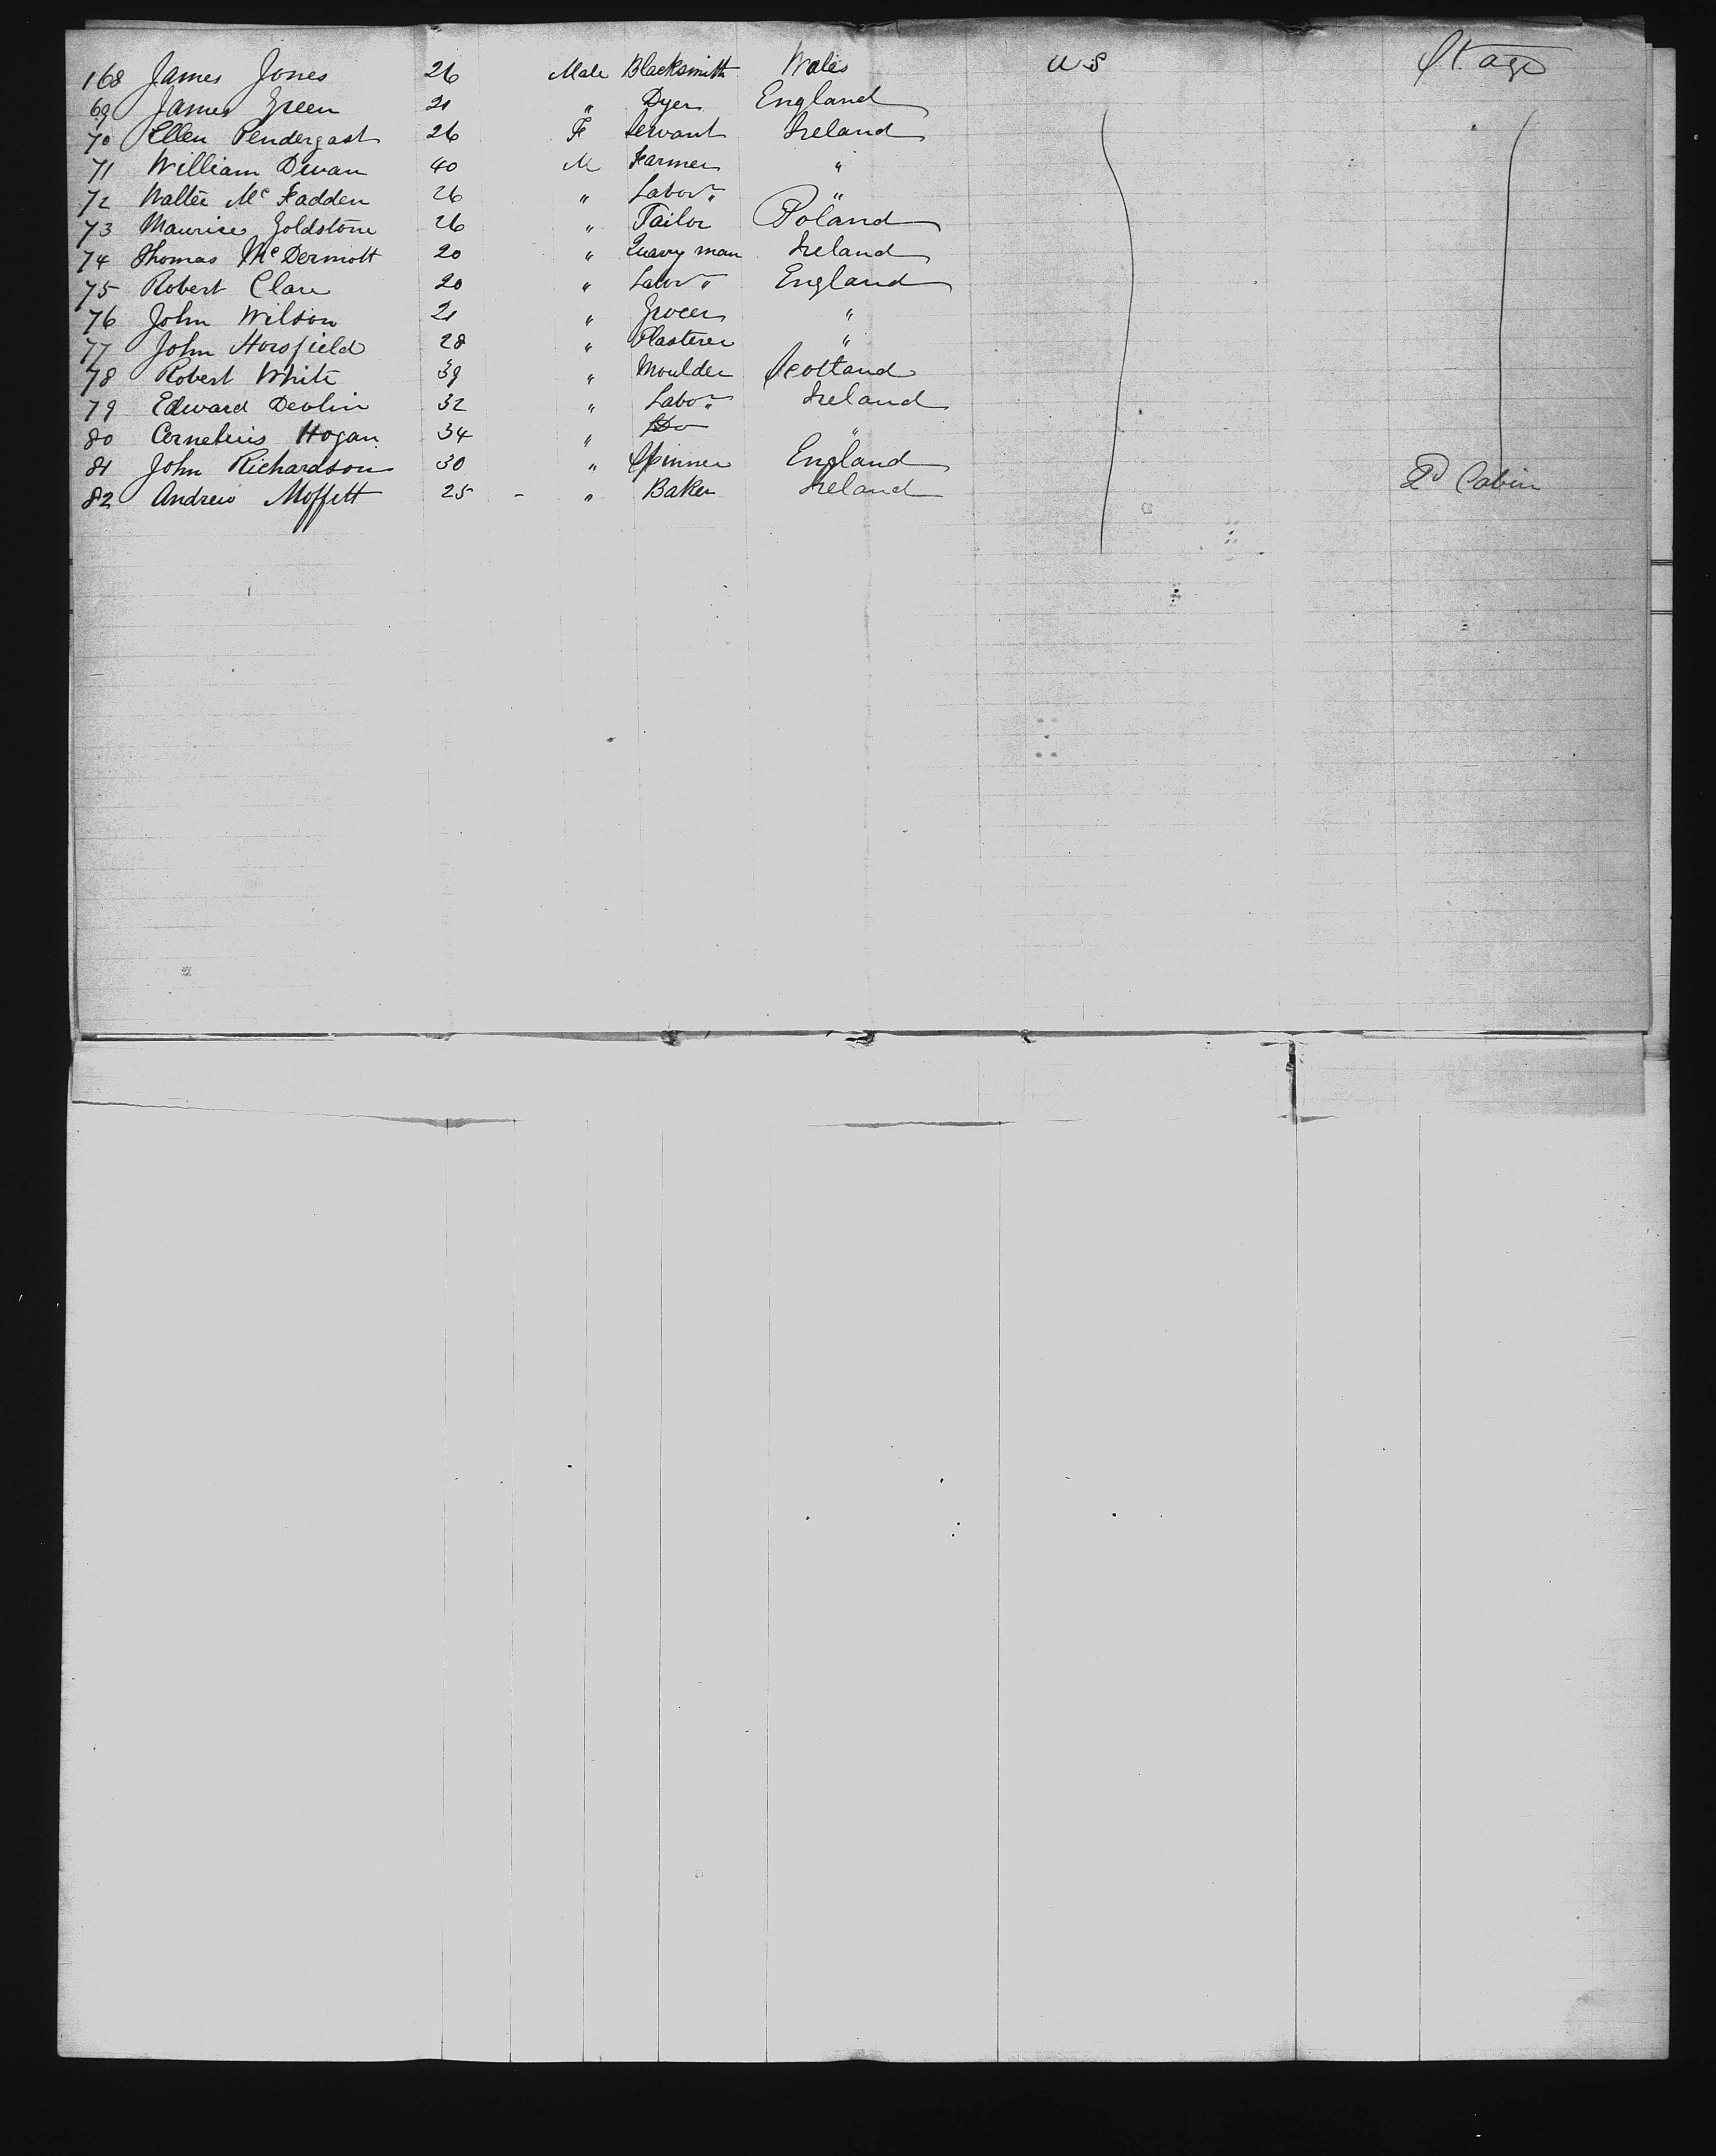 168 James Jones 26 Male Blacksmith Wales US Stage
69 James Green 21 " Dyer England
70 Ellen Pendergast 26 F Servant Ireland
71 William Divan 40 M Farmer "
72 Walter Mc Fadden 26 " Labor "
73 Maurice Goldstone 26 " Tailor Poland
74 Thomas McDermott 20 " Quarry man Ireland
75 Robert Clare 20 " Labor England
76 John Wilson 21 " Grocer "
77 John Horsfield 28 " Plasterer "
78 Robert White 39 " Moulder Scotland
79 Edward Devlin 32 " Labor Ireland
80 Cornelius Hogan 34 " Do "
81 John Richardson 30 " Spinner England
82 Andrew Moffett 25 - " Baker Ireland 2d Cabin